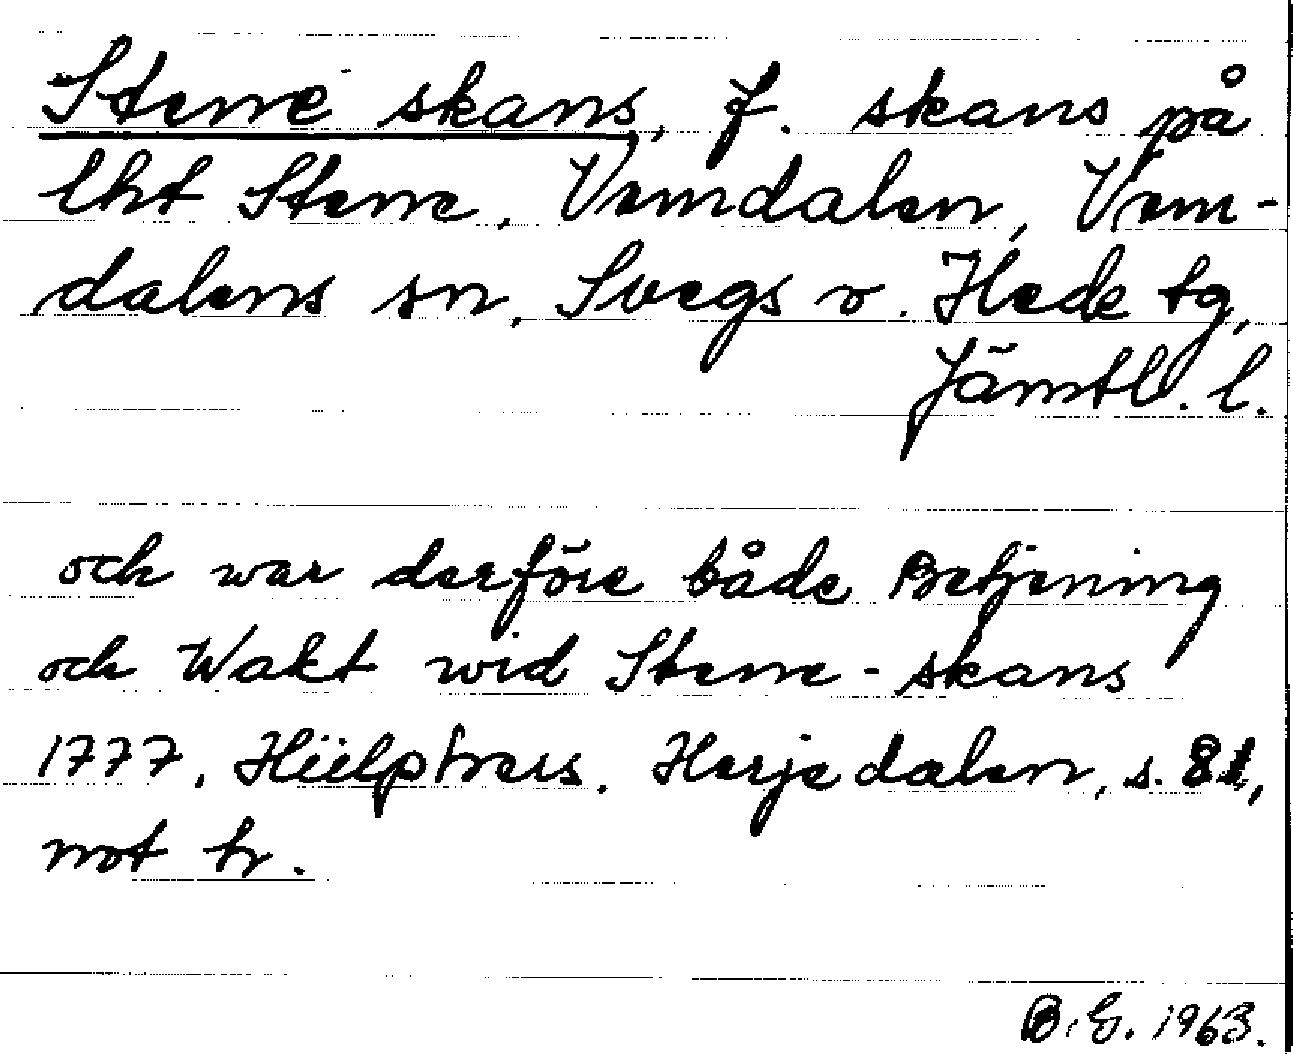 Stenne skans, f. skans på
lht Stenne, Vemdalen, Vem-
dalens sn, Svegs o. Hede tg,
Jämtl. l.
och war derföre både Betjening
och Wakt wid Stenne-skans
1777, Hülphers. Herjedalen, s. 81,
not tr.
B. E. 1963.